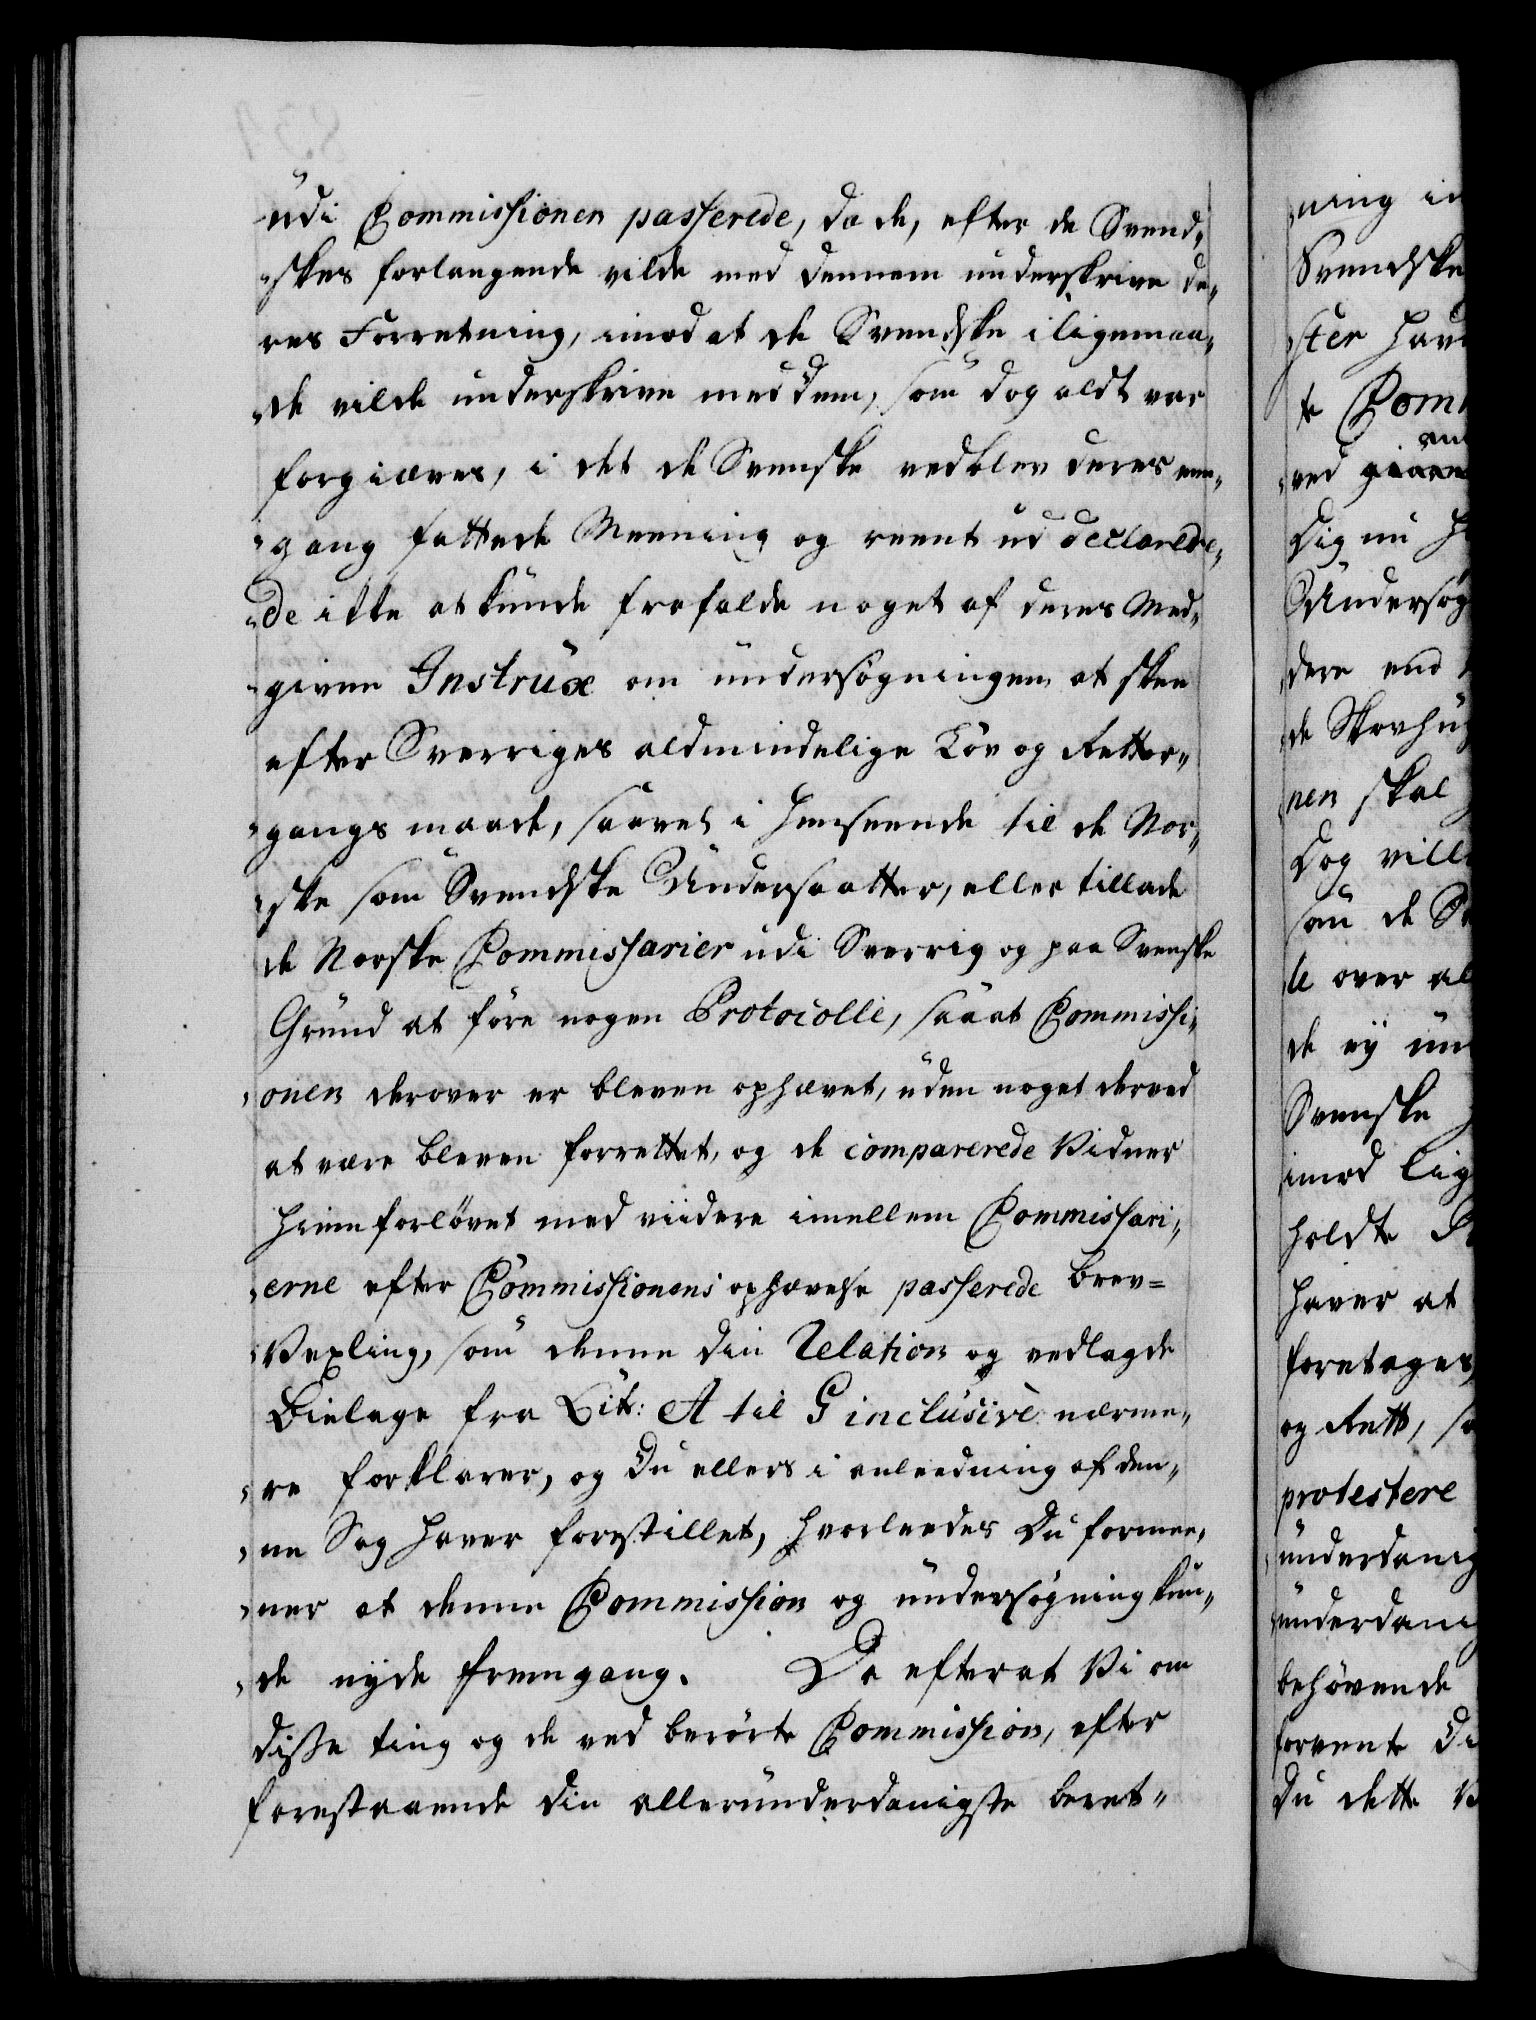 udi Commissionen passerede, da de, efter de Svend„
„skes forlangende vilde med dennem underskrive de„
res Forretning, imod at de Svendske i ligemaa„
„de vilde underskrive med dem, som dog aldt var
forgiæves, i det de Svenske vedblev deres een„
„gang fattede Meening og reent ud declarere„
„de ikke at kunde frafalde noget af deres Med„
„given Instrux om undersøgningen at skee
efter Sverriges aldmindelige Lov og Retter„
„gangs maade, saavel i henseende til de Nor„
„ske som Svendske Undersaatter, eller tillade
de Norske Commissarier udi Sverrig og paa Svenske
Grund at føre nogen Protocolle, saa at Commissi„
„onen derover er bleven ophævet, uden noget derved
at være bleven forrettet, og de comparerede Vidner
hiemforløvet med viidere imellem Commissari„
„erne efter Commissionens ophævelse passerede brev=
Vexling, som denne din Relation og vedlagde
Bielage fra Lit: A til G inclusive nærme„
„re forklarer, og Du ellers i anleedning af den„
„ne Sag haver forestillet, hvorleedes Du formee„
„ner at denne Commission og undersøgning kun„
„de nyde fremgang. Da efterat Vi om
disse ting og de ved berørte Commission, efter
forestaaende din allerunderdanigste beret„
ning
Svendske
ster
te
ved
Dig nu
Undersøg
dere end
de Skovhug
nen skal
Dog
saa de
le over
de ey
Svenske
imod lig
holdte
haver at
foretages,
og Rett,
protestere
underdanig
underdanig
behøvende
forvente
Du dette